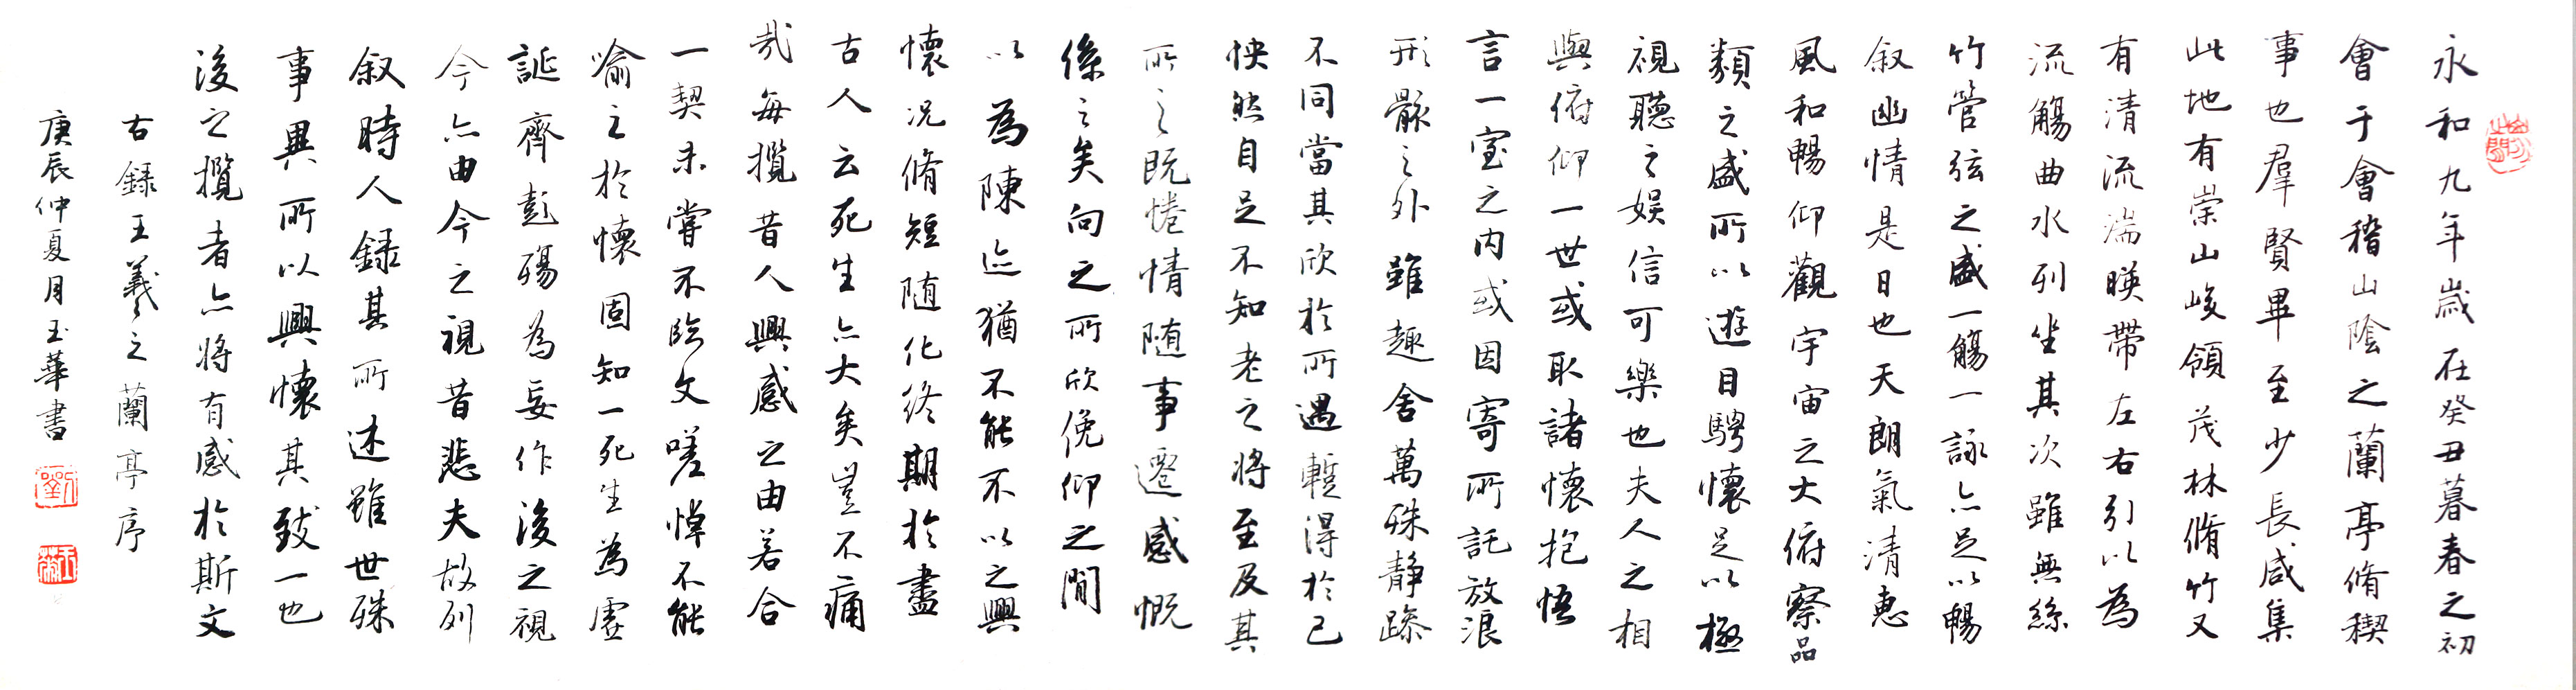 永和九年歲在癸丑暮春之初
會于會稽山陰之蘭亭脩稧
事也羣賢畢至少長咸集
此地有崇山峻領茂林脩竹又
有清流湍暎帶左右引以為
流觴曲水列坐其次雖無絲
竹管弦之盛一觴一詠亦足以暢
叙幽情是日也天朗氣清惠
風和暢仰觀宇宙之大俯察品
類之盛所以遊目騁懷足以極
視聽之娛信可樂也夫人之相
與俯仰一世或取諸懷抱悟
言一室之内或因寄所託放浪
形骸之外雖趣舍萬殊静躁
不同當其欣於所遇蹔得於己
怏然自足不知老之將至及其
所之既惓情随事遷感慨
係之矣向之所欣俛仰之閒
以為陳迹猶不能不以之興
懷况脩短随化終期於盡
古人云死生亦大矣豈不痛
哉每攬昔人興感之由若合
一契未嘗不臨文嗟悼不能
喻之於懷固知一死生為虛
誕齊彭殤為妄作後之視
今亦由今之視昔悲夫故列
叙時人錄其所述雖世殊
事異所以興懷其致一也
後之攬者亦將有感於斯文
右錄王羲之蘭亭序
庚辰仲夏月玉華書
劉
玉華